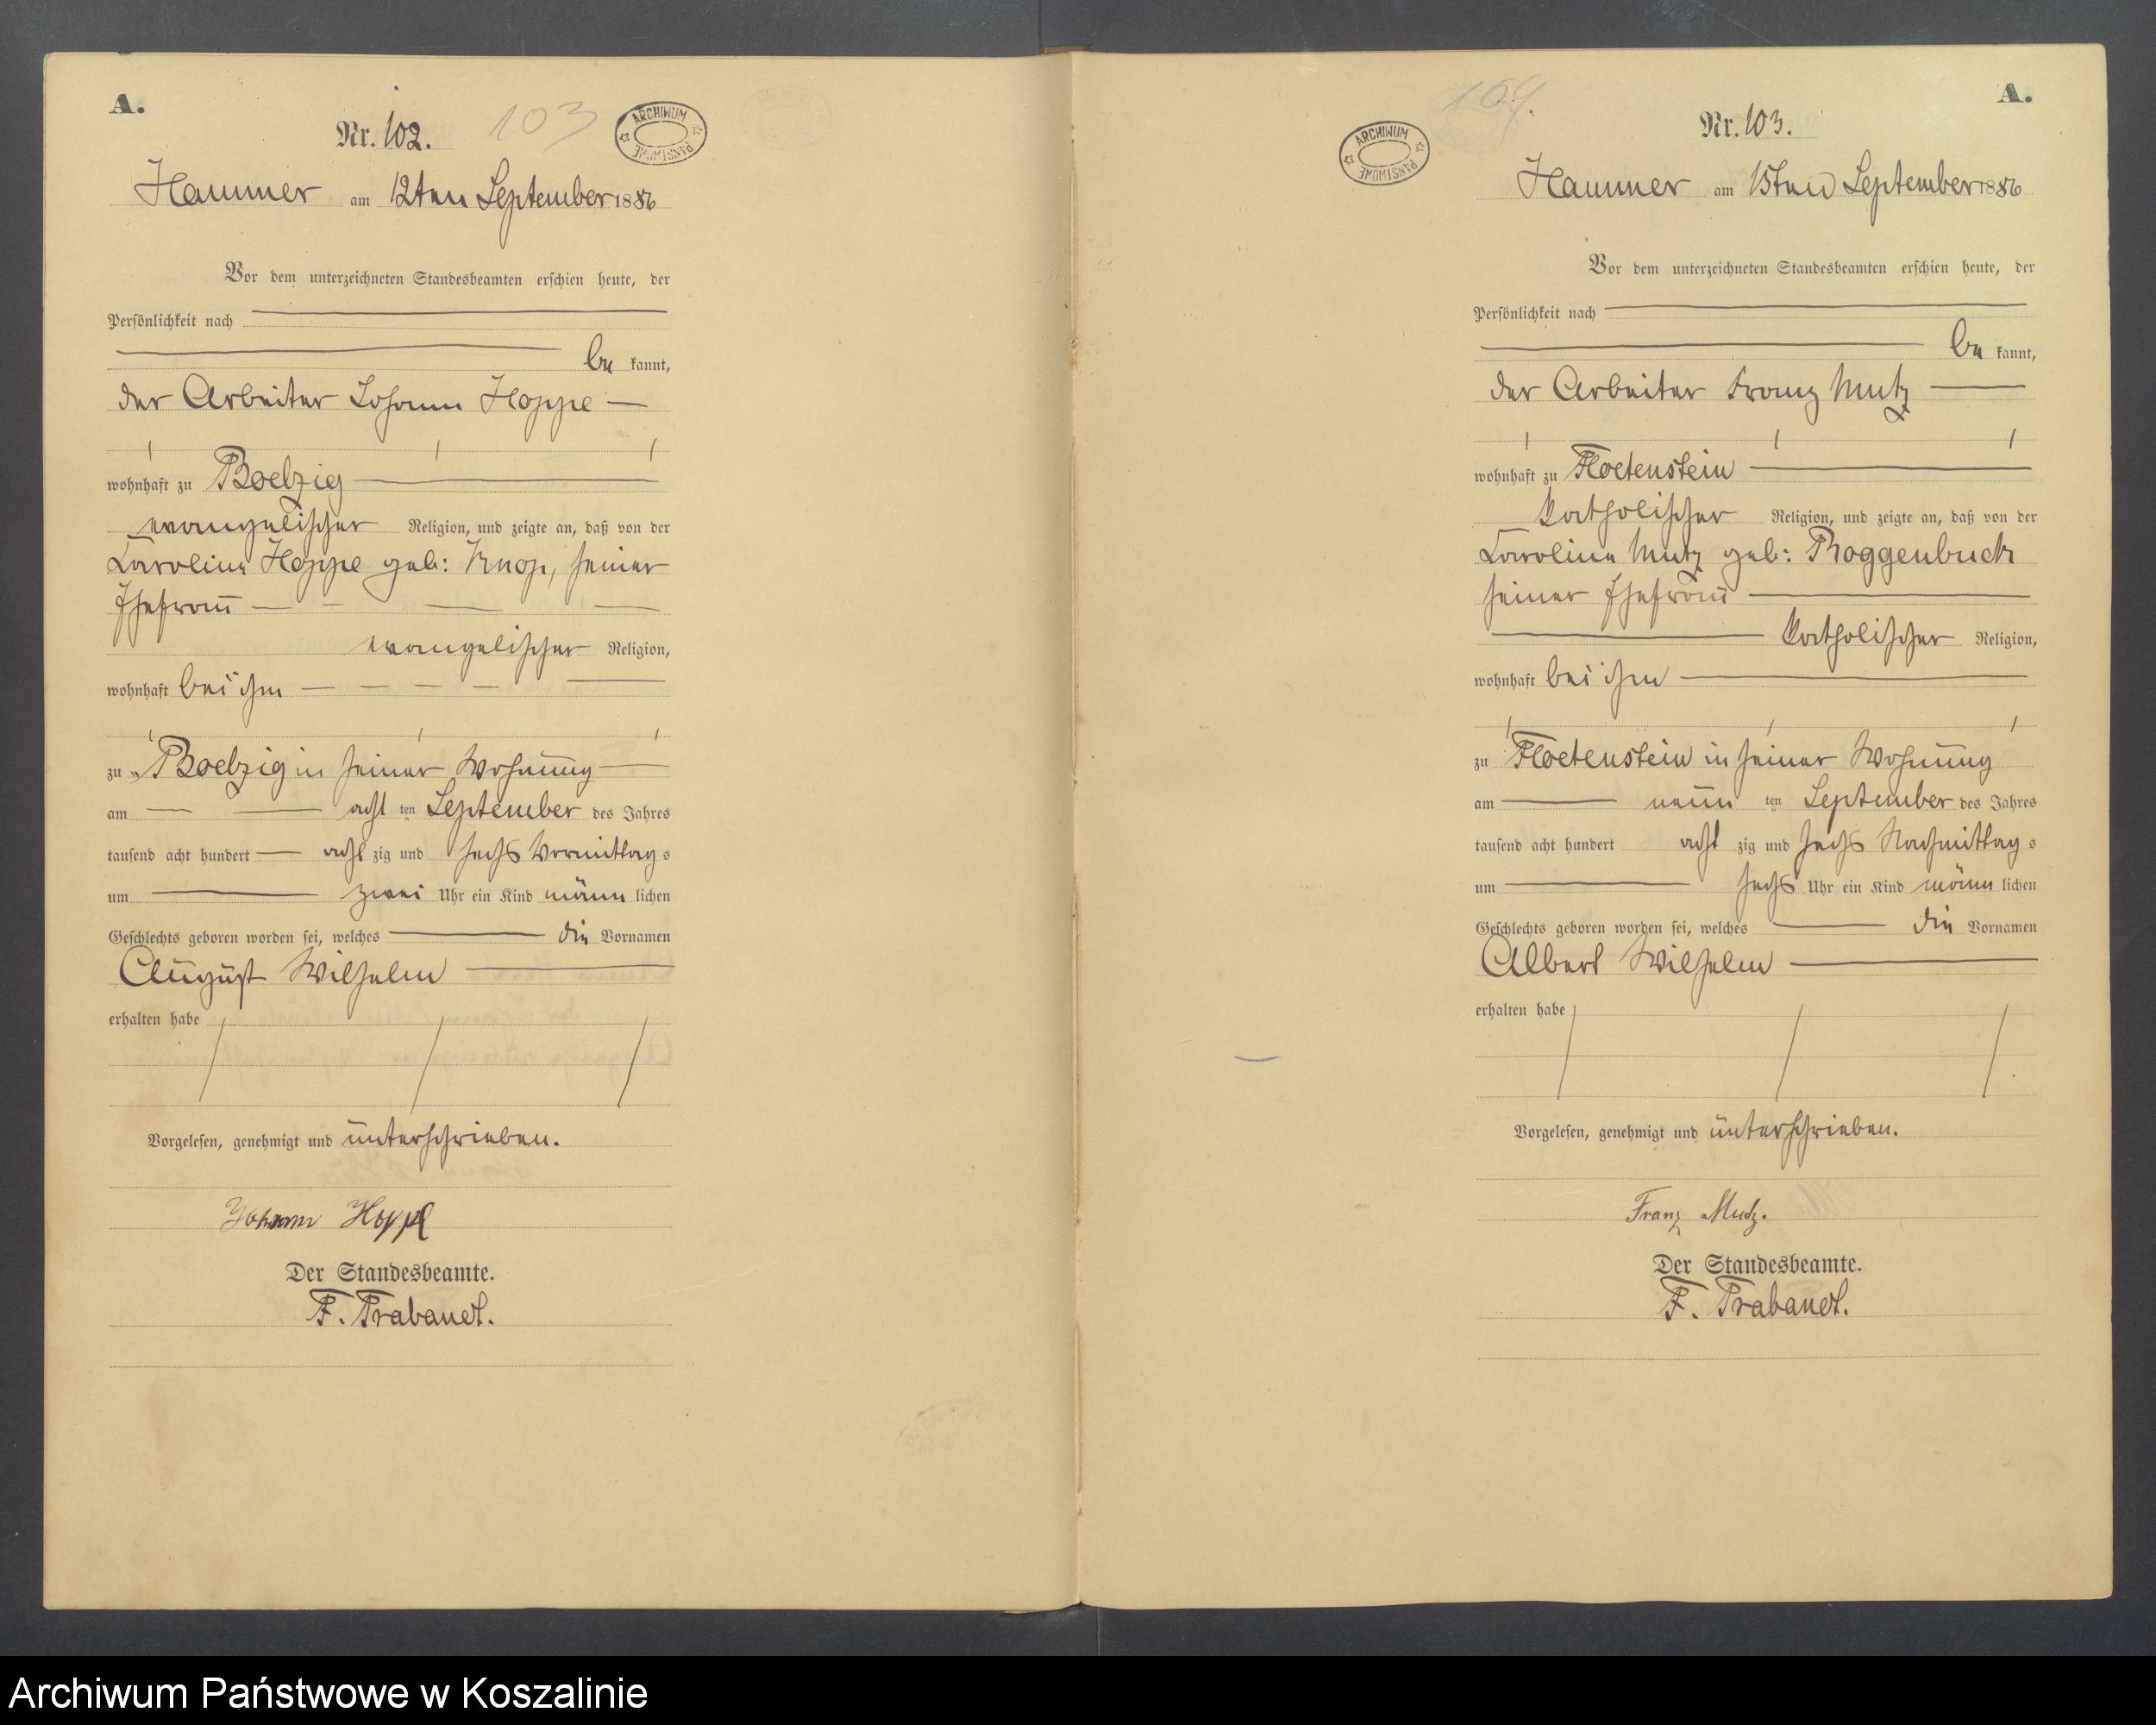 A.
Nr. 102.
103
ARCHIWUM PAŃSTWOWE
Hammer am 12ten September 1886
Vor dem unterzeichneten Standesbeamten erschien heute, der
Persönlichkeit nach
be kannt,
der Arbeiter Johann Hoppe —
wohnhaft zu Boelzig
evangelischer Religion, und zeigte an, daß von der
Caroline Hoppe geb: Knop, seiner
Ehefrau
evangelischer Religion,
wohnhaft bei ihm
zu Boelzig in seiner Wohnung
am acht ten September des Jahres
tausend acht hundert acht zig und sechs Vormittag s
um zwei Uhr ein Kind männ lichen
Geschlechts geboren worden sei, welches die Vornamen
August Wilhelm
erhalten habe
Vorgelesen, genehmigt und unterschrieben.
Johann Hoppe
Der Standesbeamte.
F. Trabandt.
A.
Nr. 103.
104.
ARCHIWUM PAŃSTWOWE
Hammer am 15ten September 1886
Vor dem unterzeichneten Standesbeamten erschien heute, der
Persönlichkeit nach
be kannt,
der Arbeiter Franz Mutz
wohnhaft zu Floetenstein
katholischer Religion, und zeigte an, daß von der
Caroline Mutz geb: Roggenbuck
seiner Ehefrau
katholischer Religion,
wohnhaft bei ihm
zu Floetenstein in seiner Wohnung
am neun ten September des Jahres
tausend acht hundert acht zig und sechs Nachmittag s
um sechs Uhr ein Kind männ lichen
Geschlechts geboren worden sei, welches die Vornamen
Albert Wilhelm
erhalten habe
Vorgelesen, genehmigt und unterschrieben.
Franz Mutz.
Der Standesbeamte.
F. Trabandt.
Archiwum Państwowe w Koszalinie